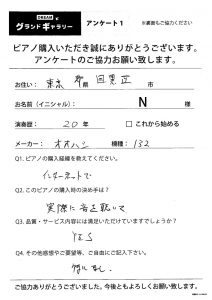 DREAM と
グランドギャラリー アンケート1 ※裏面もご協力ください
ピアノ購入いただき誠にありがとうございます。
アンケートのご協力お願い致します。
お住い： 東京 都 目黒区 市
お名前（イニシャル）： N 様
演奏歴： 20年 □これから始める
メーカー： オオハシ 機種： 132
Q1. ピアノの購入経緯を教えてください。
インターネットで
Q2. このピアノの購入時の決め手は？
実際に音を聴いて
Q3. 品質・サービス内容には満足いただけていますでしょうか？
YES
Q4. その他感想やご要望等、ご自由にご記入下さい。
特になし
ご協力ありがとうございました。今後ともよろしくお願い致します。